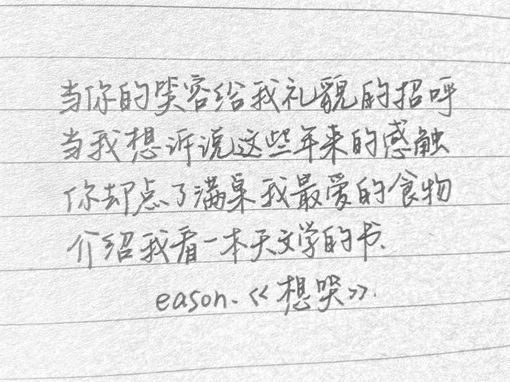 当你的笑容给我礼貌的招呼
当我想诉说这些年来的感触
你却点了满桌我最爱的食物
介绍我看一本天文学的书、
eason.《想哭》.